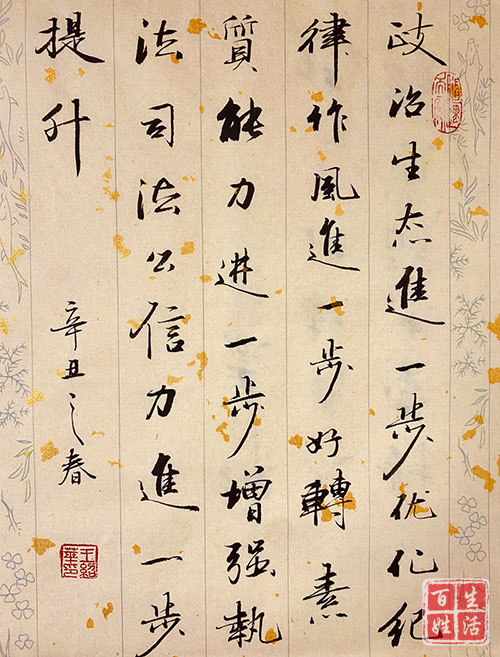 政治生态進一步优化纪
律作風進一步好轉素
質能力进一步增强執
法司法公信力進一步
提升
辛丑之春
百姓生活